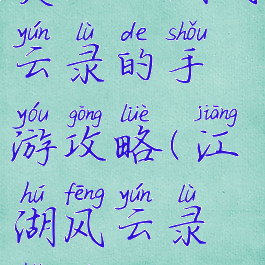 yún lù de shǒu
云录的手
yóu gōng lüè jiāng
游攻略(江
hú fēng yún lù
湖风云录